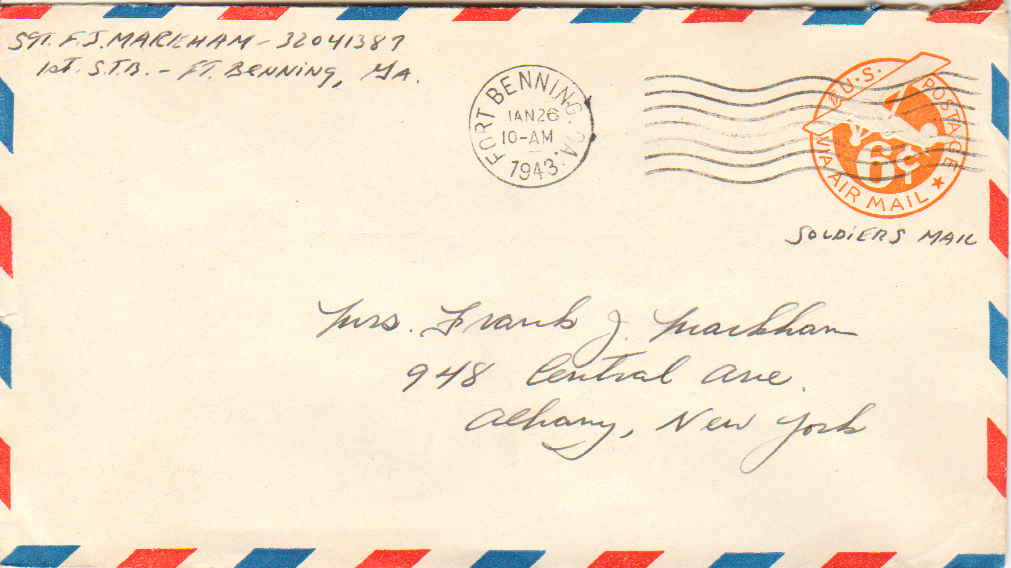 SGT. F. J. MARKHAM - 32041387
1st. S.T.B. - FT. BENNING, GA.
FORT BENNING. GA.
JAN 26
10-AM
1943
U.S. POSTAGE
6¢
VIA AIR MAIL
SOLDIERS MAIL
Mrs. Frank J. Markham
948 Central Ave.
Albany, New York